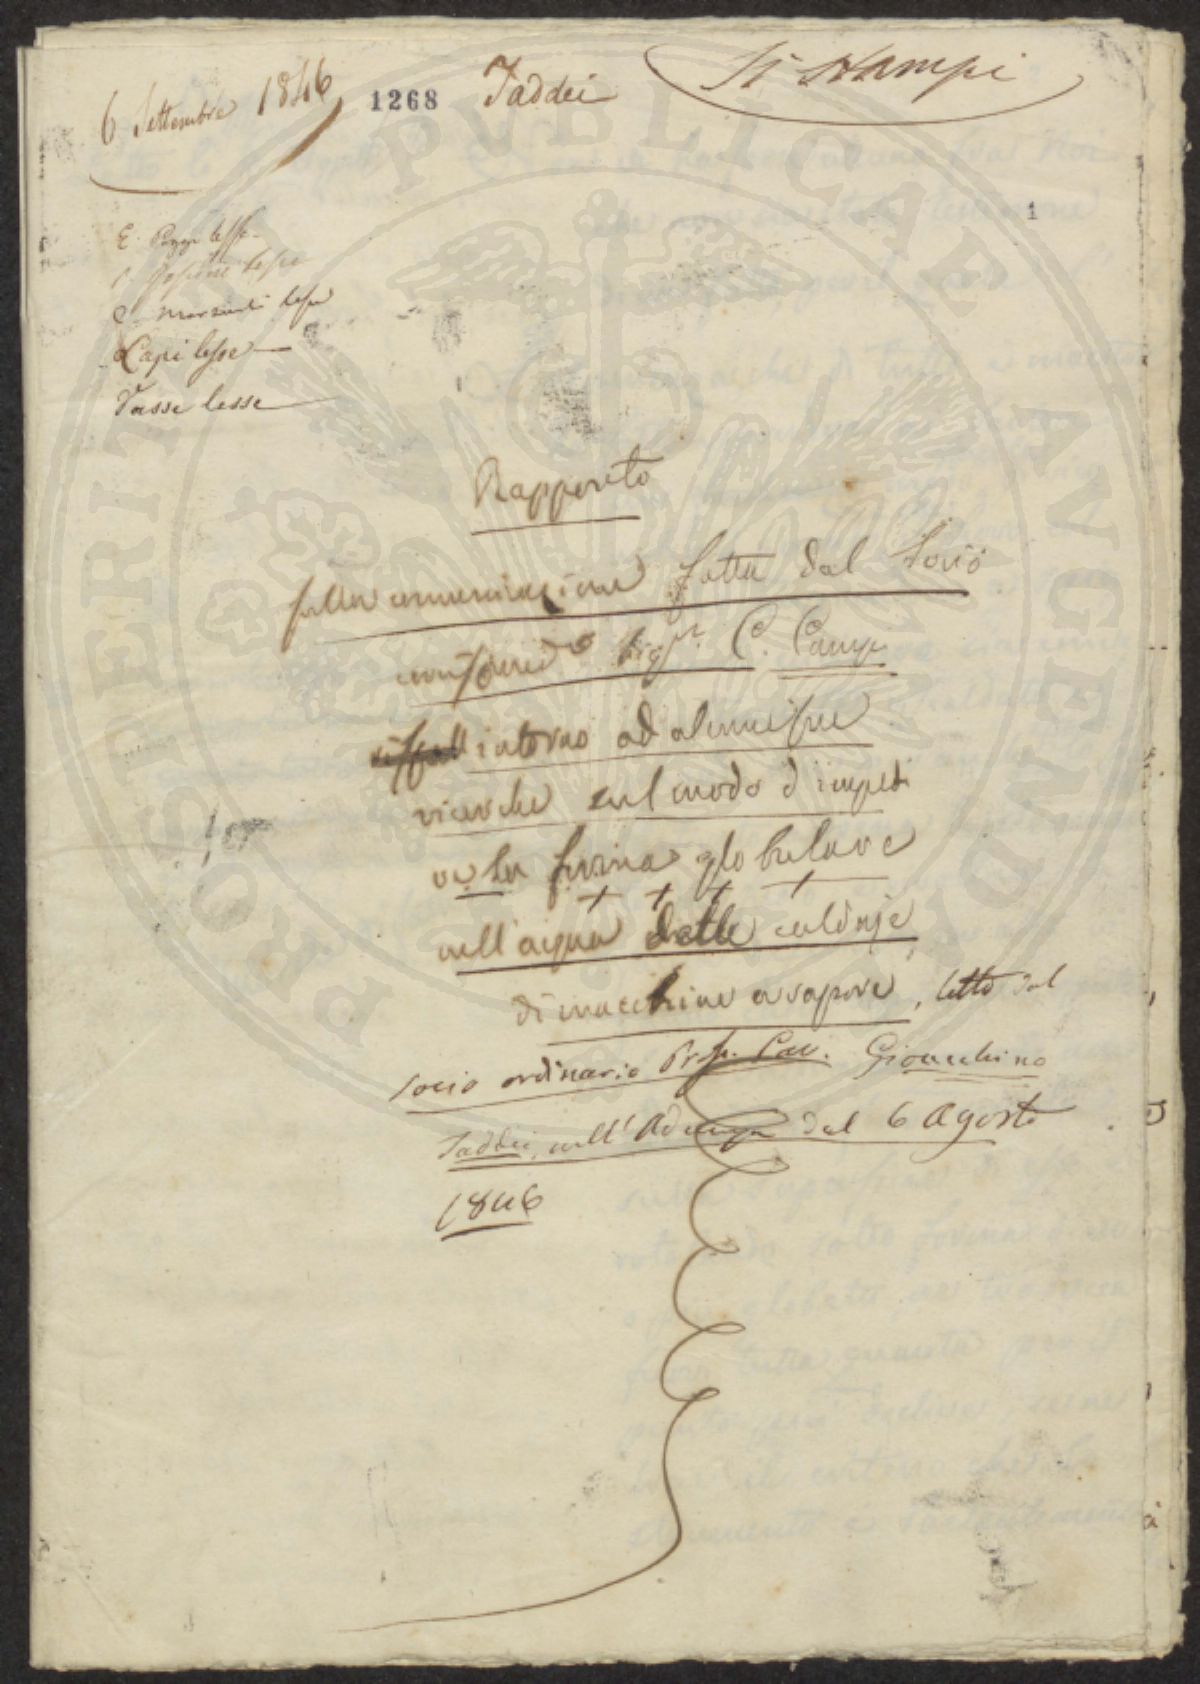 6 Settembre 1846
1268
Taddei
Si stampi
1
E. Poggi lesse
lesse
C. lesse
Lapi lesse
Tasse lesse
Rapporto
sulla comunicazione fatta dal Socio
Sigr. C. Campi
intorno ad alcune sue
ricerche sul modo d'impedi
re la forma globulare
nell'acqua delle caldaje
di macchine a vapore, letto dal
socio ordinario Prof. Cav. Gioacchino
Taddei, nell'Adunza del 6 Agosto
1846
PROSPERITATI PUBLICAE AUGENDAE